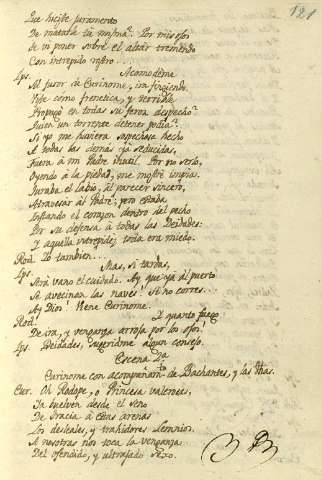 121
Que hiciste juramento
De matarle tu misma? Por mis ojos
Le vi poner sobre el altar tremendo
Con intrepido rostro...
Lps. Acomodéme
Al furor de Curinome, ira fingiendo.
Pide como frenetica, y terrible
Propuso en todas su feroz despecho:
Quien un torrente detener podia?
Si yo me huviera sospechosa hecho
A todas las demas ya seducidas,
Fuera á mi Padre inutil. Por no serlo,
Oyendo á la piedad, me mostré impia.
Juraba el labio, al parecer sincero,
Atravesar al Padre; pero estaba
Instando el corazon dentro del pecho
Por su defensa á todas las Deidades:
Y aquella intrepidez toda era miedo.
Rod. Yo tambien...
Lps. Mas, si tardas,
Será vano el cuidado. Ay que yá al puerto
Se avecinan las naves! Si no corres...
Ay Dios! Viene Curinome.
Rod. Y quanto fuego
De ira, y venganza arroja por los ojos!
Lps. Deidades, sugeridme algun consejo.
Escena 2.da
Curinome con acompañam.to de Bachantes, y las dhas.
Cur. Oh Rodope, o Princesa valerosas,
Ya vuelven desde el seno
De Tracia á estas arenas
Los desleales, y trahidores Lemnios.
A nosotras nos toca la venganza
Del ofendido, y ultrajado sexo.